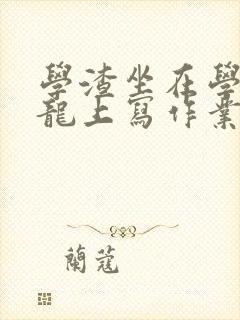 學渣坐在學
龍上寫作業
蘭蔻